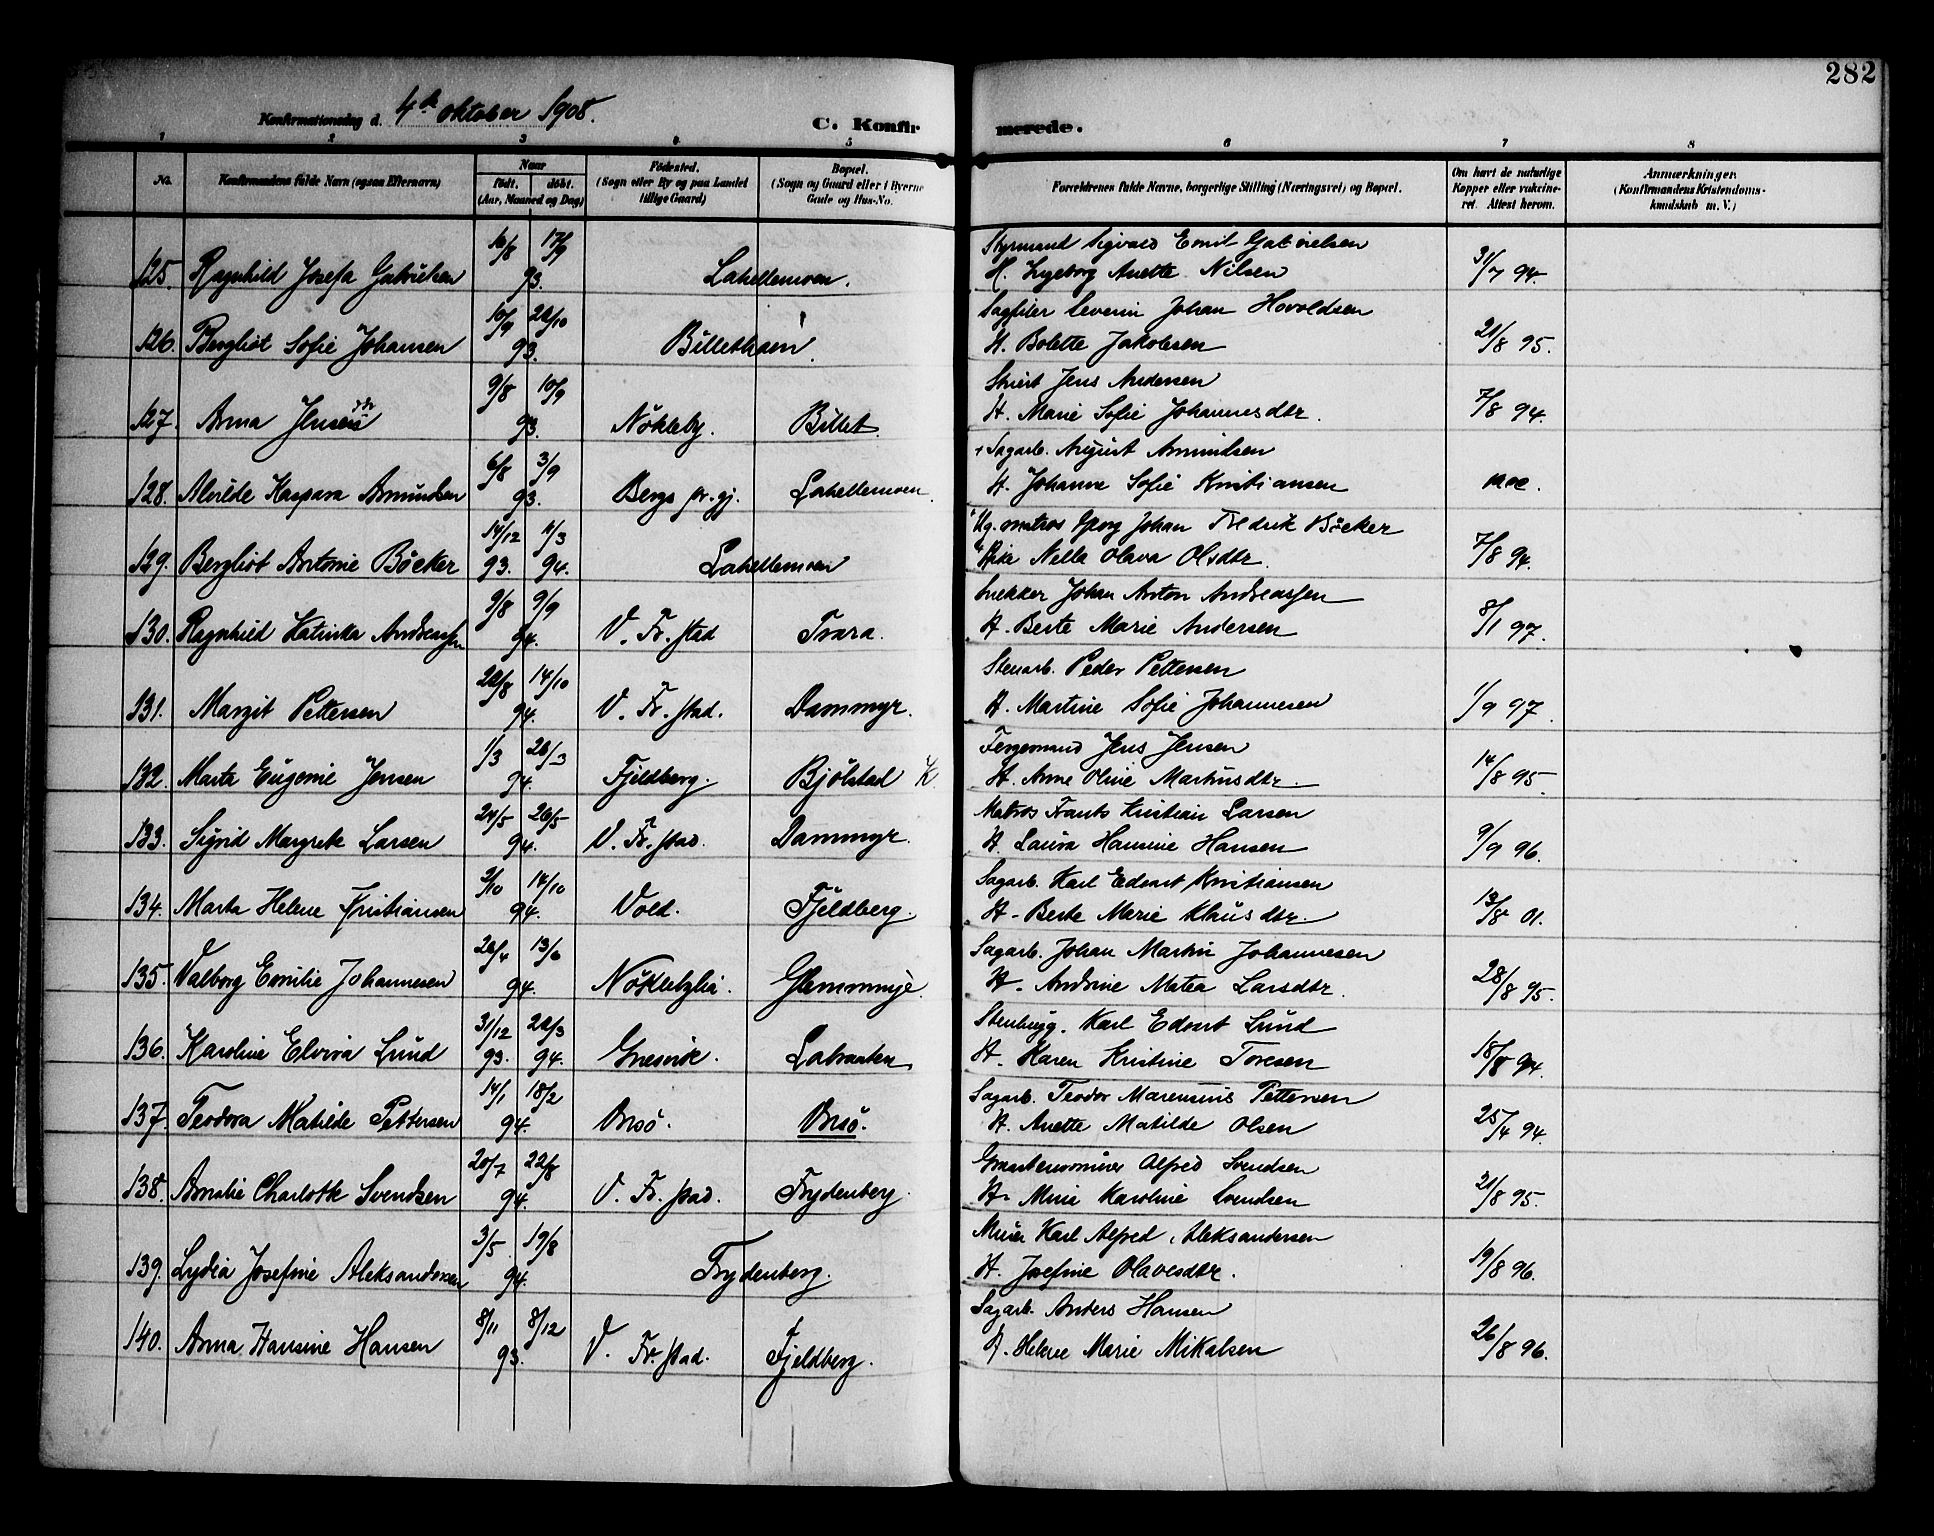 282
Konfirmationsdag d. 4de oktober 1908.
C. Konfirmerede.
1 2 3 4 5 6 7 8
No.
Konfirmandens fulde Navn (ogsaa Efternavn)
Naar
födt. döbt.
(Aar, Maaned og Dag)
Födested.
(Sogn eller By og paa Landet
tillige Gaard)
Bopæl.
(Sogn og Gaard eller i Byerne
Gade og Hus-No.
Forældrenes fulde Navne, borgerlige Stilling (Næringsvei) og Bopæl.
Om havt de naturlige
Kopper eller vakcine-
ret. Attest herom.
Anmærkninger.
(Konfirmandens Kristendoms-
kundskab m. V.)
16/8 17/9 Styrmand Sigvald Emil Gabrielsen
125. Ragnhild Josefa Gabrielsen 93. Lahellemoen. H. Ingeborg Anette Nilsen 31/7 94.
10/9 22/10 Sagfiler Severin Johan Havoldsen
126. Bergliot Sofie Johansen 93. H. Bolette Jakobsen 21/8 95.
9/8 10/9 Jens Andersen
127. Anna Jensen 93. Nökleby. Billet. H. Marie Sofie Johannesdtr. 7/8 94.
6/8 3/9 Sagarb. August Amundsen
128. Alvilde Kaspara Amundsen 93. Bergs pr.gj. Lahellemoen. H. Johanne Sofie Kristiansen
14/12 4/3 Ug. matros Georg Johan Fredrik Böcker
129. Bergliot Antonie Böcker 93. 94. Lahellemoen Pike Nella Olava Olsdtr. 7/8 94.
9/8 9/9 Snekker Johan Anton Andreassen
130. Ragnhild Katinka Andreassen 94. V. Fr.stad Trara. H. Berte Marie Andersen 8/1 97.
22/8 14/10 Stenarb. Peder Pettersen
131. Margit Pettersen 94. V. Fr.stad. Dammyr. H. Martine Sofie Johannesen 1/9 97.
1/3 26/3 Fergemand Jens Jensen
132. Marta Eugenie Jensen 94. Fjeldberg. Bjölstad K. H. Anne Oline Martinusdtr. 14/8 95.
24/5 26/5 Matros Frants Kristian Larsen
133. Sigrid Margrete Larsen 94. V. Fr.stad. Dammyr. H. Laura Hansine Hansen 9/9 96.
2/10 14/10 Sagarb. Karl Edvart Kristiansen
134. Marta Helene Kristiansen 94. Vold. Fjeldberg. H. Berte Marie Klausdtr. 13/8 01.
22/4 13/6 Sagarb. Johan Martin Johannesen
135. Valborg Emilie Johannesen 94. Nöklebylia. Glemminge. H. Andrine Matea Larsdtr. 28/8 95.
31/12 22/3 Stenhugg. Karl Edvart Lund
136. Karoline Elvira Lund 93. 94. Gresvik. Labraaten H. Karen Kristine Toresen 18/8 94.
14/1 18/2 Sagarb. Teodor Marensius Pettersen
137. Teodora Matilde Pettersen 94. Ørsö. Ørsö. H. Anette Matilde Olsen 25/4 94.
20/7 22/8 Graastensminer Alfred Svendsen
138. Amalie Charlotte Svendsen 94. V. Fr.stad. Frydenberg. H. Mina Karoline Svendsen 21/8 95.
3/5 19/8 Miner Karl Alfred Aleksandersen
139. Lydia Josefine Aleksandersen 94. Frydenberg. H. Josefine Olavesdtr. 19/8 96.
8/11 8/12 Sagarb. Anders Hansen
140. Anna Hansine Hansen 93. V. Fr.stad. Fjeldberg. H. Helene Marie Mikalsen 26/8 96.